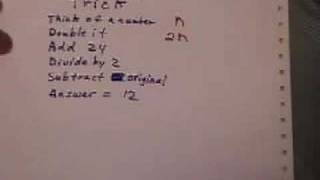 Trick
Think of a number n
Double it 2n
Add 24
Divide by 2
Subtract original
Answer = 12